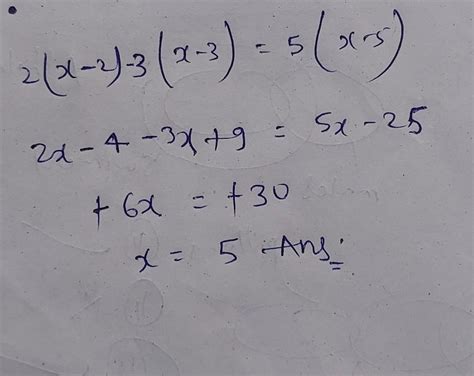 2(x-2)-3(x-3) = 5(x-5)
2x-4-3x+9 = 5x-25
+6x = +30
x = 5 Ans.